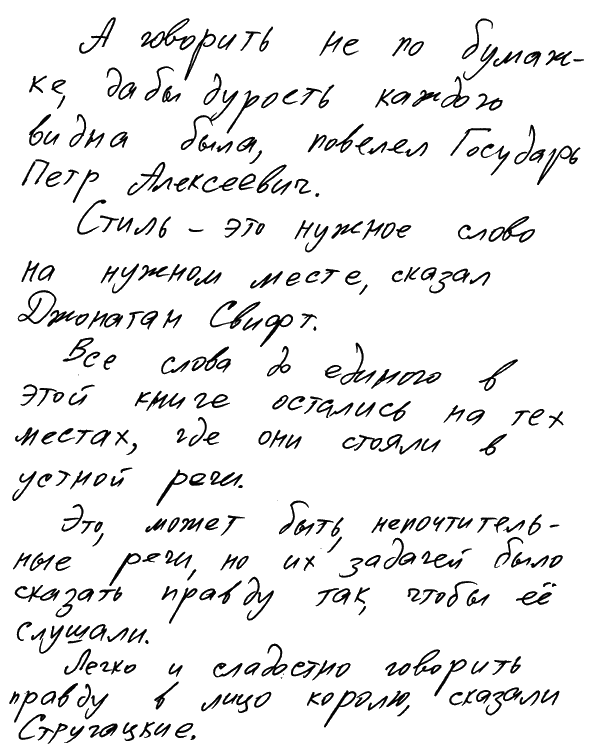 А говорить не по бумаж-
ке, дабы дурость каждого
видна была, повелел Государь
Петр Алексеевич.
Стиль – это нужное слово
на нужном месте, сказал
Джонатан Свифт.
Все слова до единого в
этой книге остались на тех
местах, где они стояли в
устной речи.
Это, может быть, непочтитель-
ные речи, но их задачей было
сказать правду так, чтобы её
слушали.
Легко и сладостно говорить
правду в лицо королю, сказали
Стругацкие.